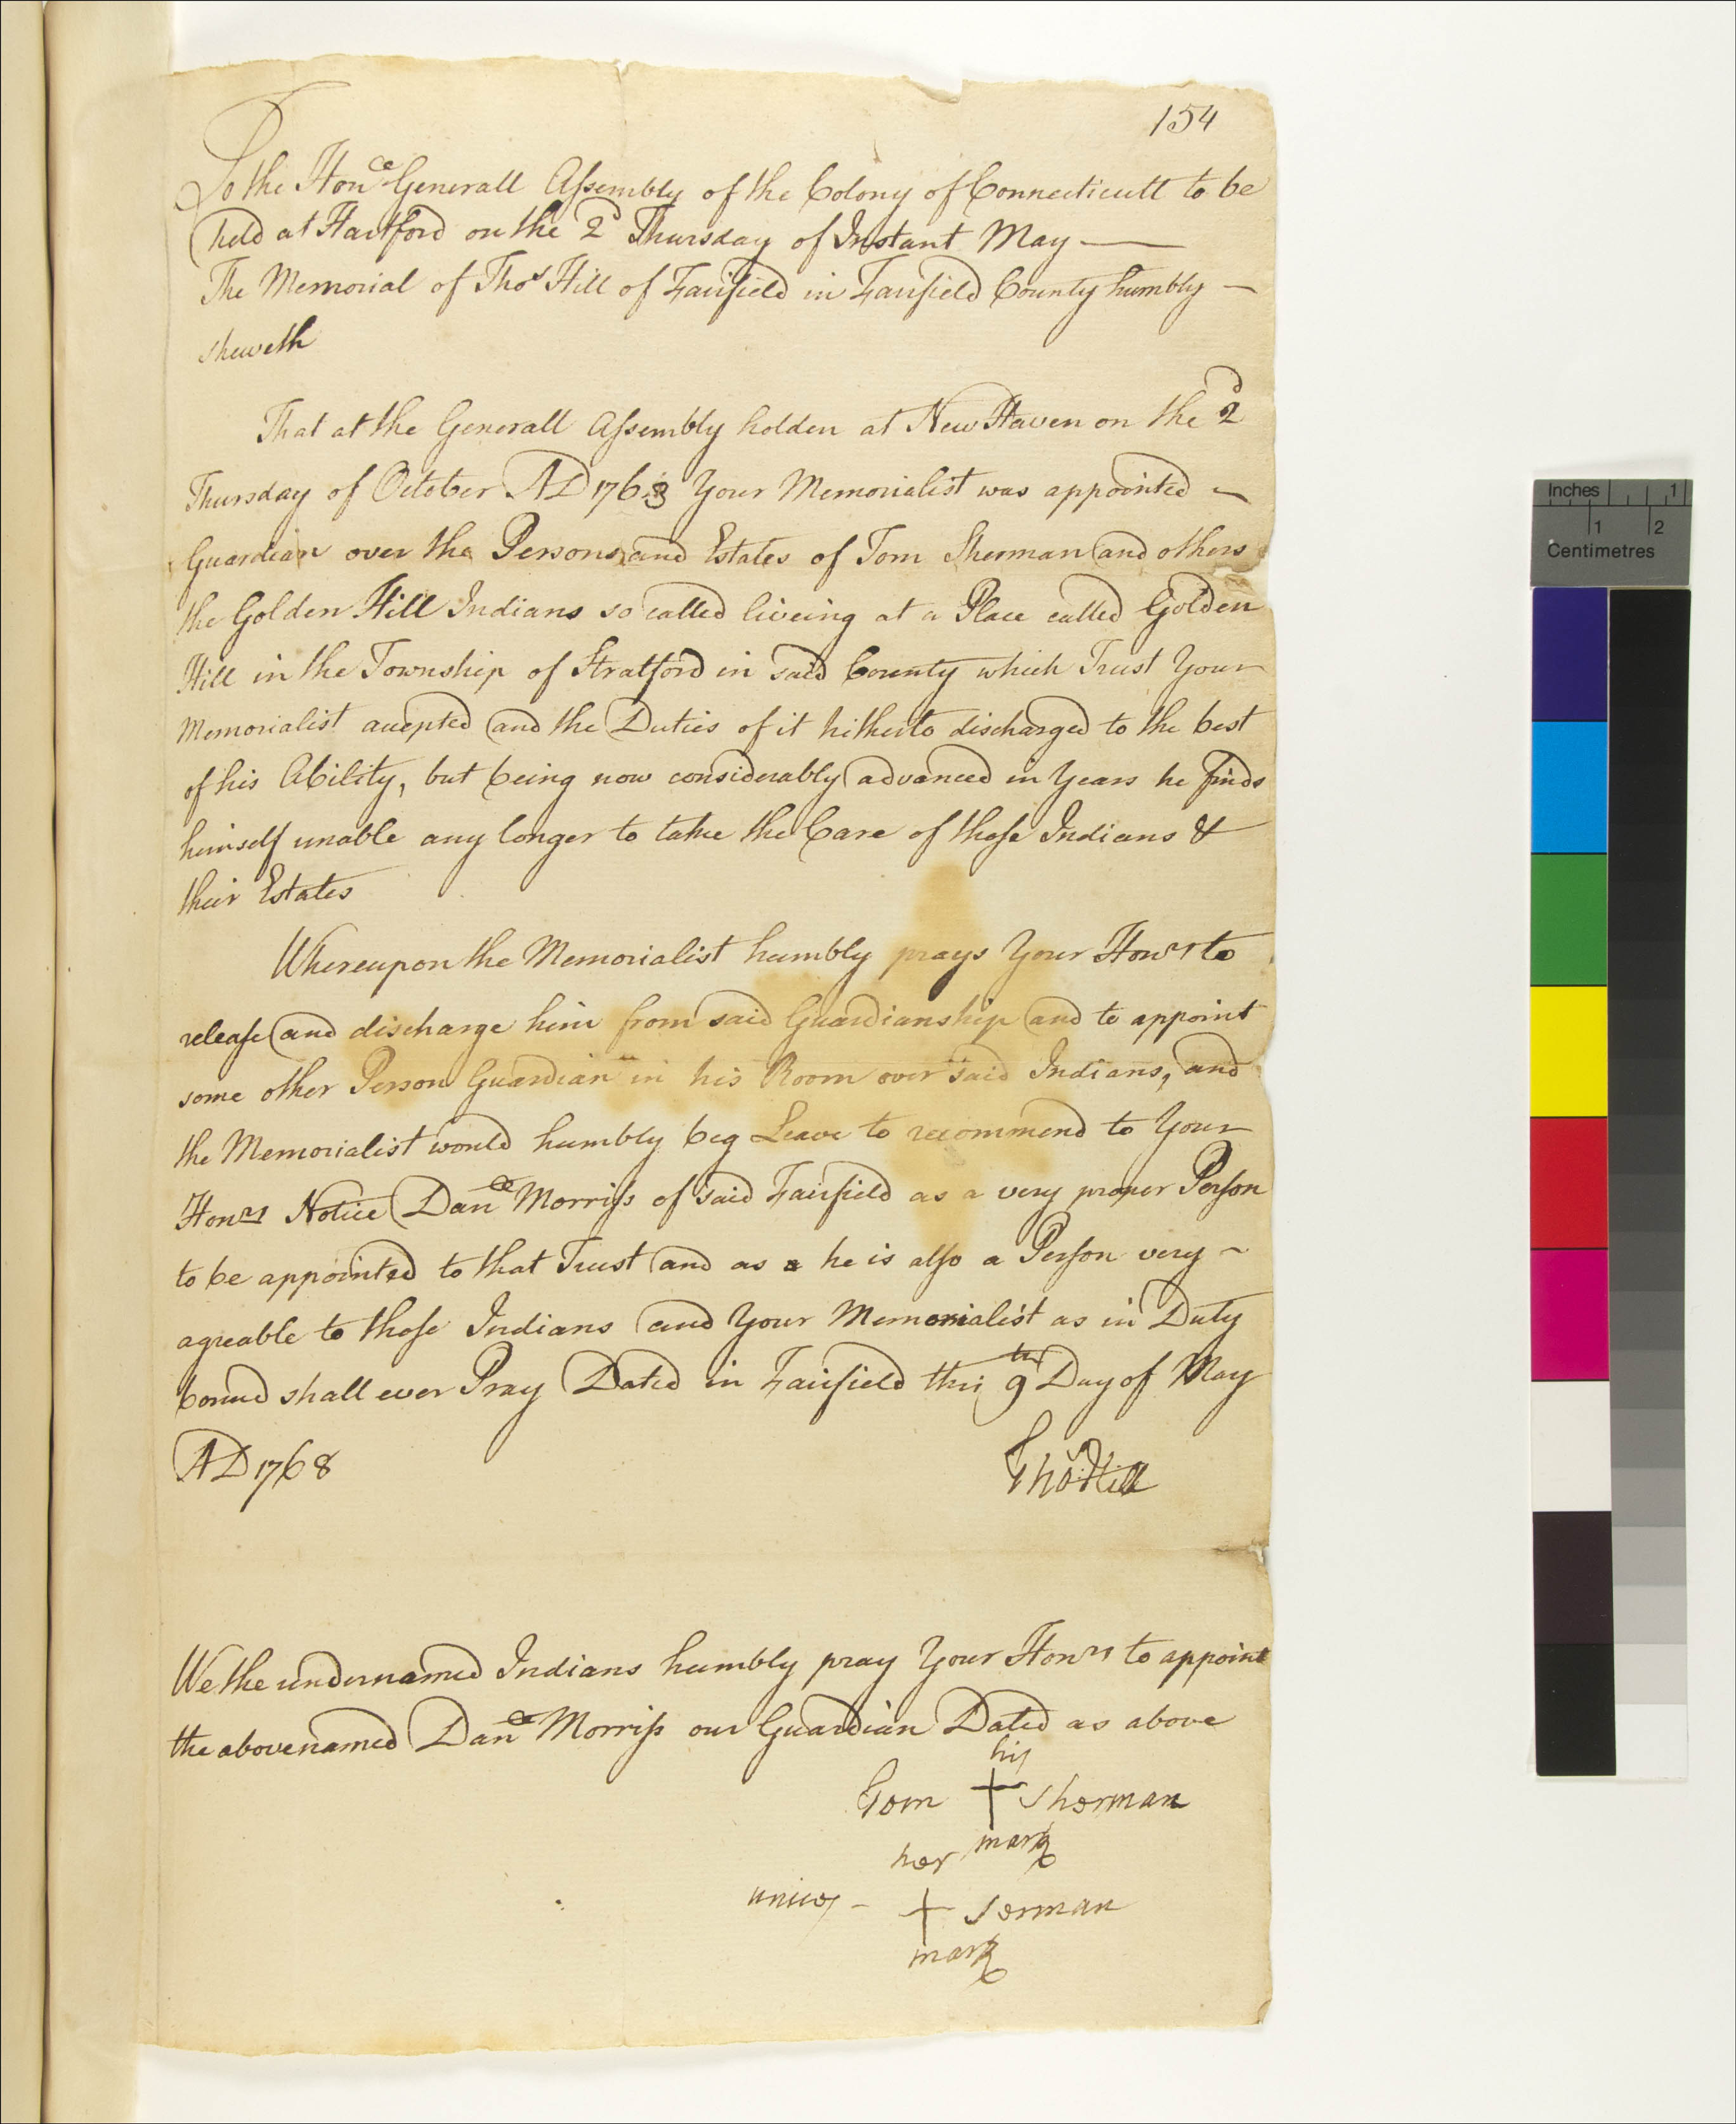 154
To the Hon.ble Generall Assembly of the Colony of Connecticutt to be
held at Hartford on the 2d Thursday of Instant May —
The Memorial of Thos Hill of Fairfield in Fairfield County humbly —
sheweth
That at the Generall Assembly holden at New Haven on the 2d
Thursday of October AD 1763 Your Memorialist was appointed ~
Guardian over the Persons and Estates of Tom Sherman and others
the Golden Hill Indians so called liveing at a Place called Golden
Hill in the Township of Stratford in said County which Trust Your
Memorialist accepted and the Duties of it hitherto discharged to the best
of his Ability, but being now considerably advanced in Years he finds
himself unable any longer to take the Care of those Indians &
their Estates
Whereupon the Memorialist humbly prays Your Honrs to
release and discharge him from said Guardianship and to appoint
some other Person Guardian in his Room over said Indians, and
the Memorialist would humbly beg Leave to recommend to Your
Honrs Notice Danll Morriss of said Fairfield as a very proper Person
to be appointed to that Trust and as a he is also a Person very ~
agreable to those Indians and Your Memorialist as in Duty
bound shall ever Pray Dated in Fairfield this 9th Day of May
AD 1768
Thos Hill
We the undernamed Indians humbly pray Your Honrs to appoint
the abovenamed Danll Morriss our Guardian Dated as above
his
Tom + Sherman
mark
her
+ Serman
mark
Inches 1
1 2
Centimetres